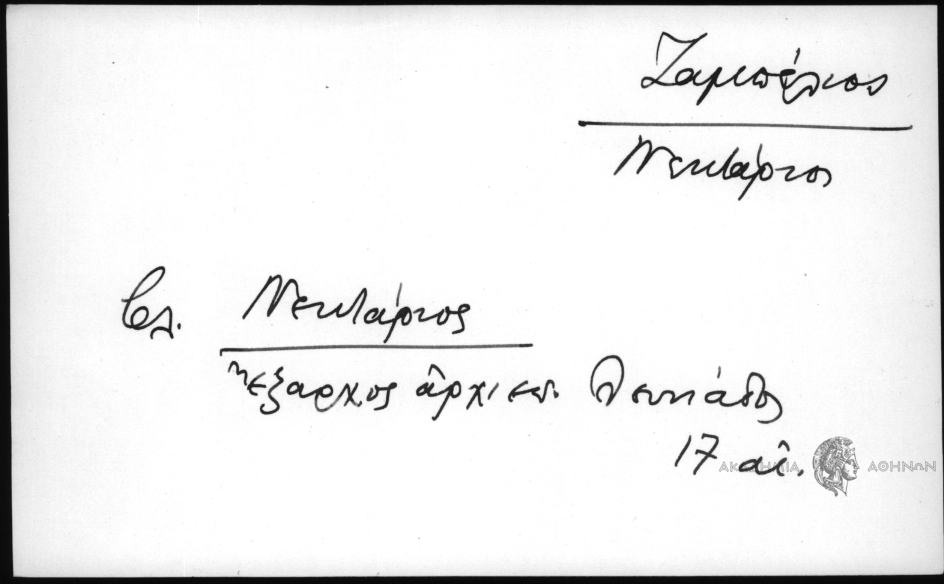 Ζαμπέλιος
Νεκτάριος
βλ. Νεκτάριος
ἔξαρχος ἀρχιεπ. Λευκάδος
17 αἰ.
ΑΚΑΔΗΜΙΑ ΑΘΗΝΩΝ